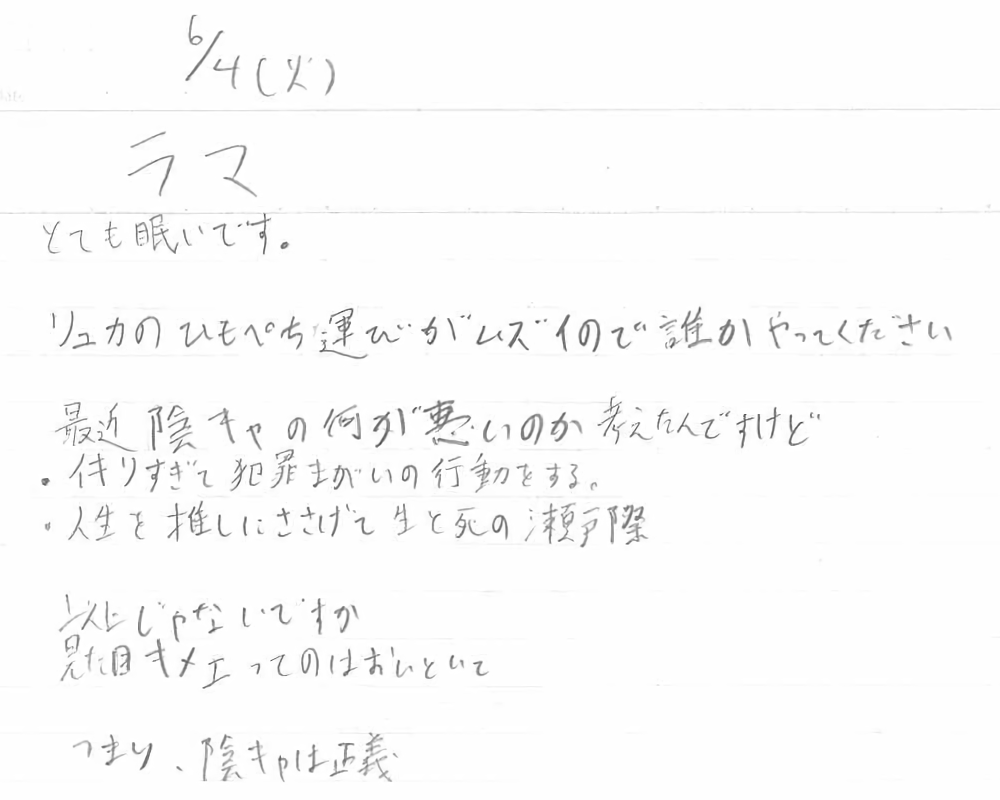 6/4(火)
ラマ
とても眠いです。
リュカのひもぺち運びがムズイので誰かやってください
最近陰キャの何が悪いのか考えたんですけど
・イキりすぎて犯罪まがいの行動をする。
・人生を推しにささげて生と死の瀬戸際
以上じゃないですか
見た目キメエってのはおいといて
つまり、陰キャは正義